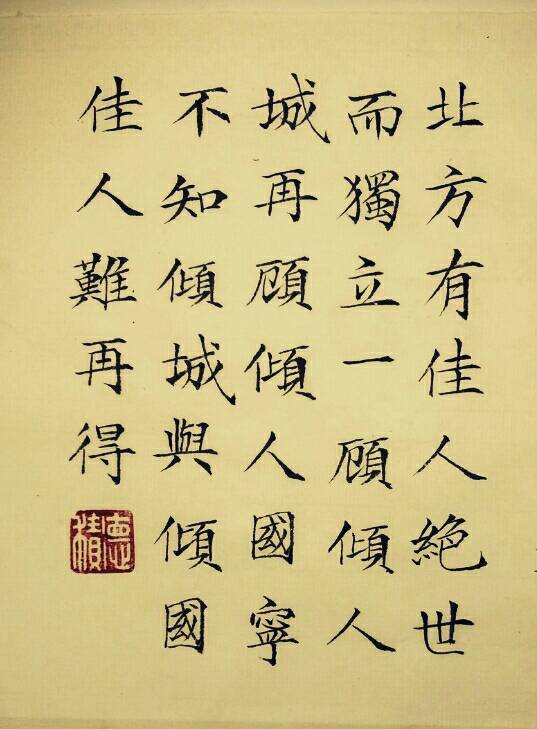 北方有佳人絕世
而獨立一顧傾人
城再顧傾人國寧
不知傾城與傾國
佳人難再得